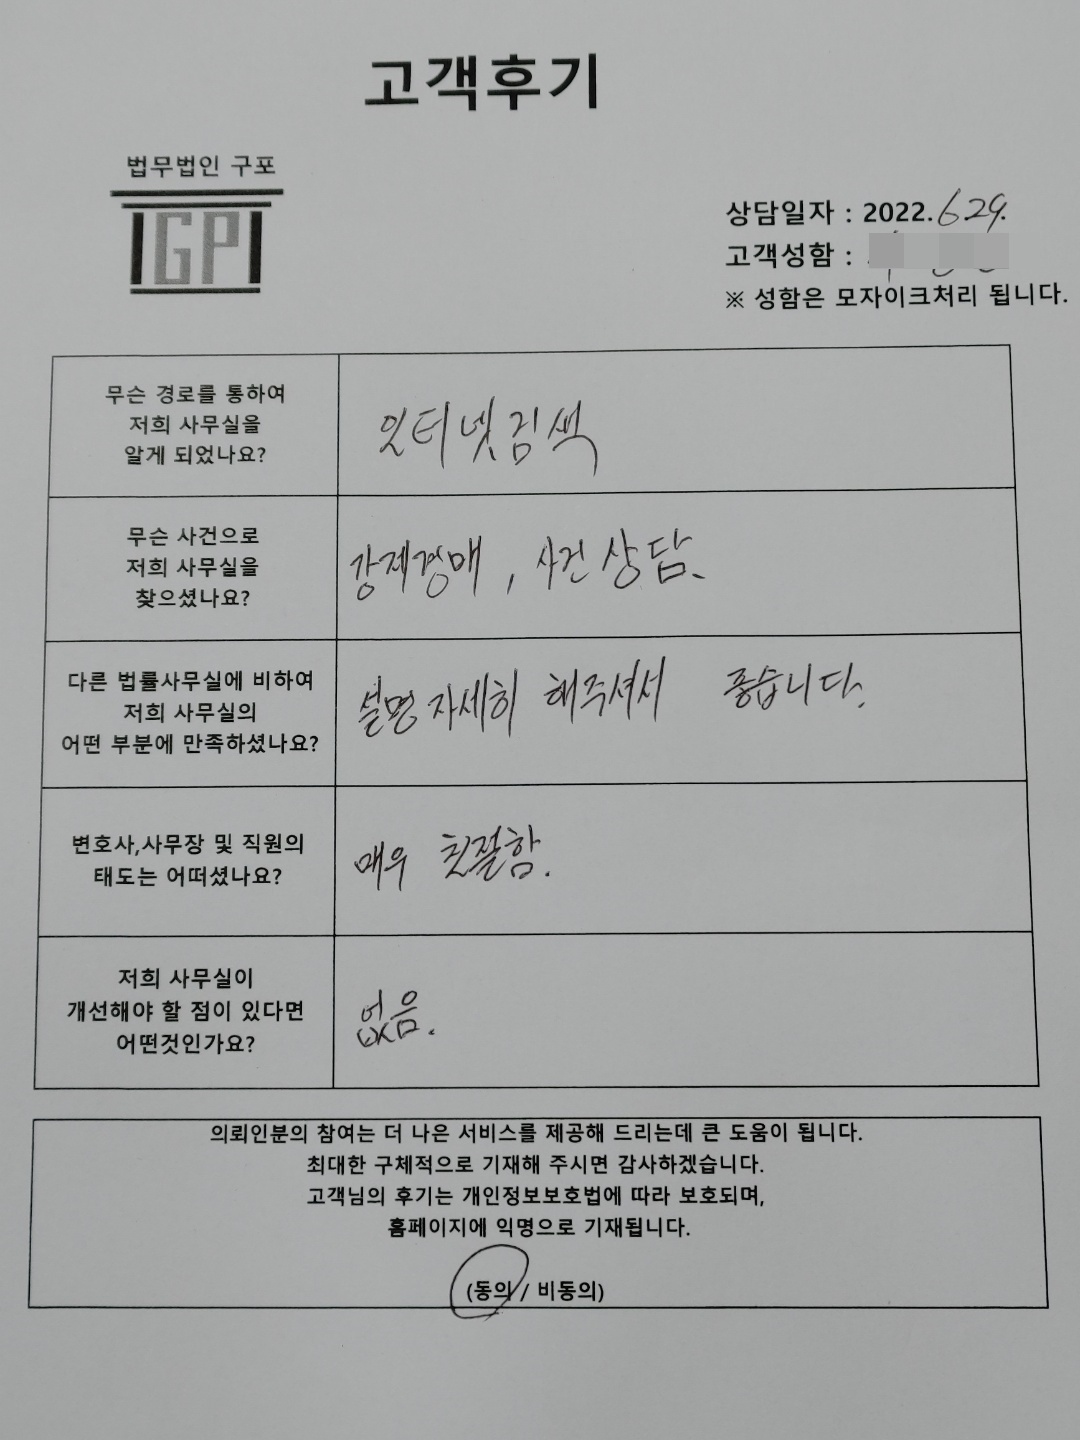 고객후기
법무법인 구포
IGPI
상담일자 : 2022. 6. 29.
고객성함 :
※ 성함은 모자이크처리 됩니다.
무슨 경로를 통하여
저희 사무실을
알게 되었나요?
인터넷검색
무슨 사건으로
저희 사무실을
찾으셨나요?
강제경매, 사건상담.
다른 법률사무실에 비하여
저희 사무실의
어떤 부분에 만족하셨나요?
설명 자세히 해주셔서 좋습니다.
변호사,사무장 및 직원의
태도는 어떠셨나요?
매우 친절함.
저희 사무실이
개선해야 할 점이 있다면
어떤것인가요?
없음.
의뢰인분의 참여는 더 나은 서비스를 제공해 드리는데 큰 도움이 됩니다.
최대한 구체적으로 기재해 주시면 감사하겠습니다.
고객님의 후기는 개인정보보호법에 따라 보호되며,
홈페이지에 익명으로 기재됩니다.
(동의 / 비동의)